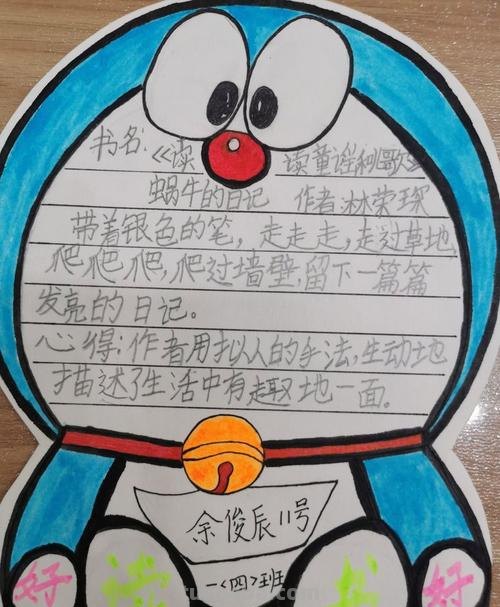 书名:《读 读童谣和歌》
蜗牛的日记 作者:林荣琛
带着银色的笔，走走走，走过草地
爬爬爬，爬过墙壁，留下一篇篇
发亮的日记。
心得:作者用拟人的手法，生动地
描述了生活中有趣地一面。
余俊辰11号
一<四>班
好 读 书 好